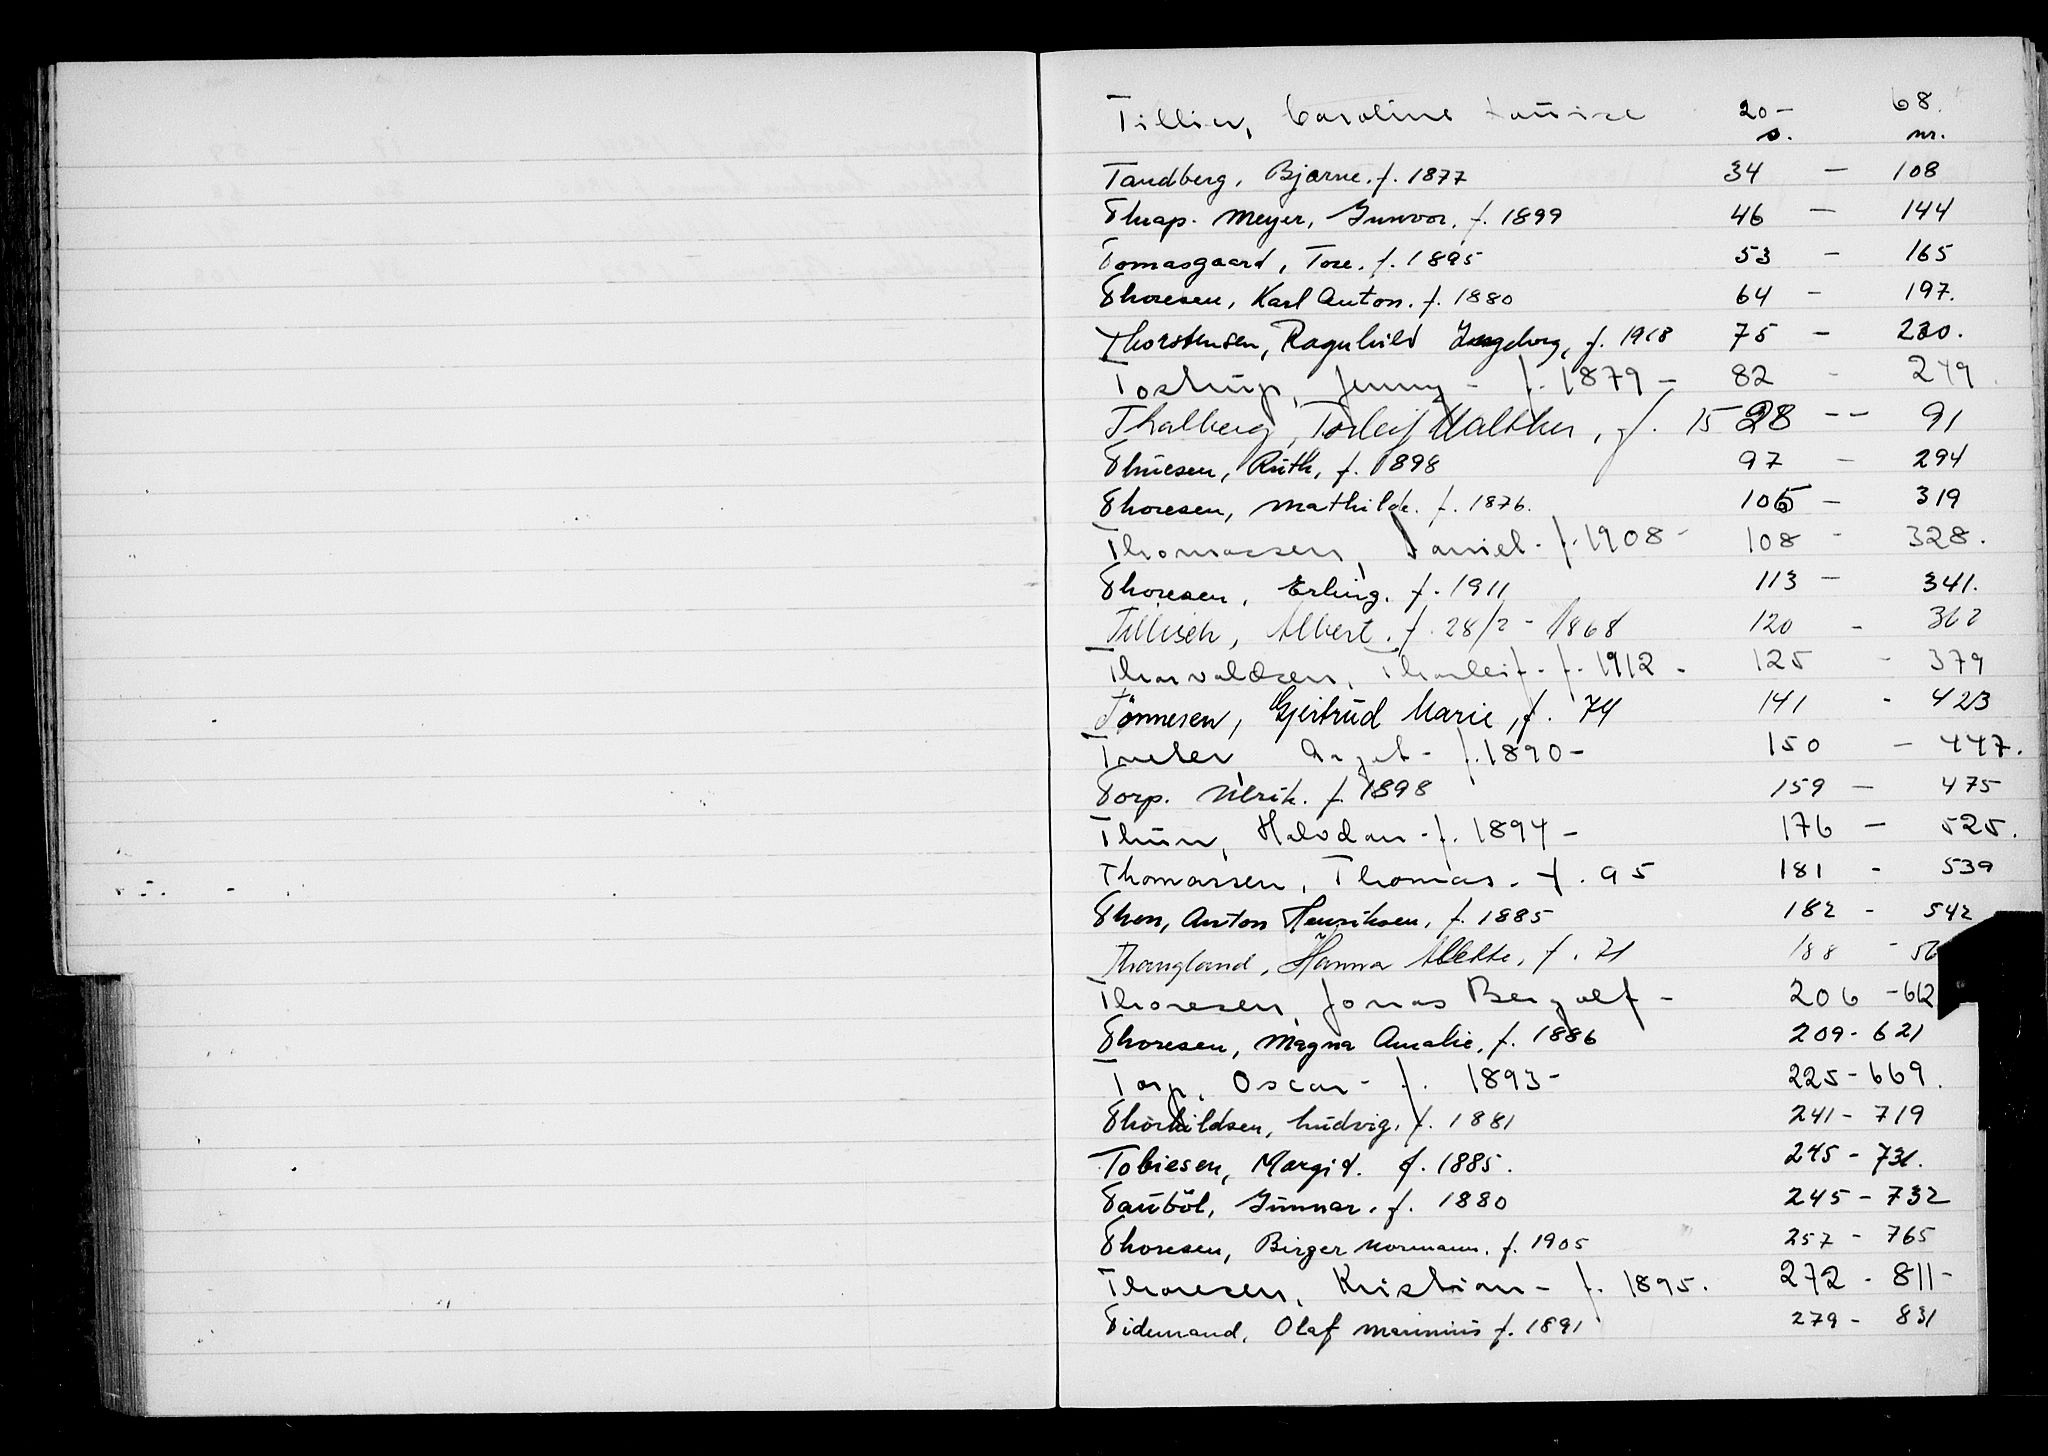 Tillier, Caroline Louise 20 - 68.
s. nr.
Tandberg, Bjarne. f. 1877 34 - 108
Thrap. Meyer, Gunvor. f. 1899 46 - 144
Tomasgaard, Tore. f. 1895 53 - 165
Thoresen, Karl Anton. f. 1880 64 - 197.
Thorstensen, Ragnhild Ingeborg, f. 1918 75 - 230.
Tostrup, Jenny - f. 1879 - 82 - 249.
Thalberg, Torleif Walther, f. 15 28 -- 91
Thuesen, Ruth, f. 1898 97 - 294
Thoresen, Mathilde. f. 1876. 106 - 319
Thomassen, Daniel - f. 1908 - 108 - 328.
Thoresen, Erling. f. 1911 113 - 341.
Tillisch, Albert. f. 28/2 - 1868 120 - 362
Thorvaldsen, Thorleif - f. 1912 - 125 - 379
Tönnesen, Gjertrud Marie, f. 74 141 - 423
f. 1890 - 150 - 447.
Torp. Ulrik. f. 1898 159 - 475
Thun, Halvdan - f. 1894 - 176 - 525.
Thomassen, Thomas. f. 95 181 - 539
Thon, Anton Henriksen, f. 1885 182 - 542
Thangland, Hanna Alette, f. 71 188 - 56
Thoresen, Jonas Bergolf - 206 - 612
Thoresen, Magna Amalie, f. 1886 209 - 621
Torp, Oscar - f. 1893 - 225 - 669.
Thorkildsen, Ludvig, f. 1881 241 - 719
Tobiesen, Margit. f. 1885. 245 - 731.
Tauböl, Gunnar. f. 1880 245 - 732
Thoresen, Birger Normann. f. 1905 257 - 765
Thoresen, Kristian - f. 1895. 272 - 811 -
Tidemand, Olaf Marinius f. 1891 279 - 831